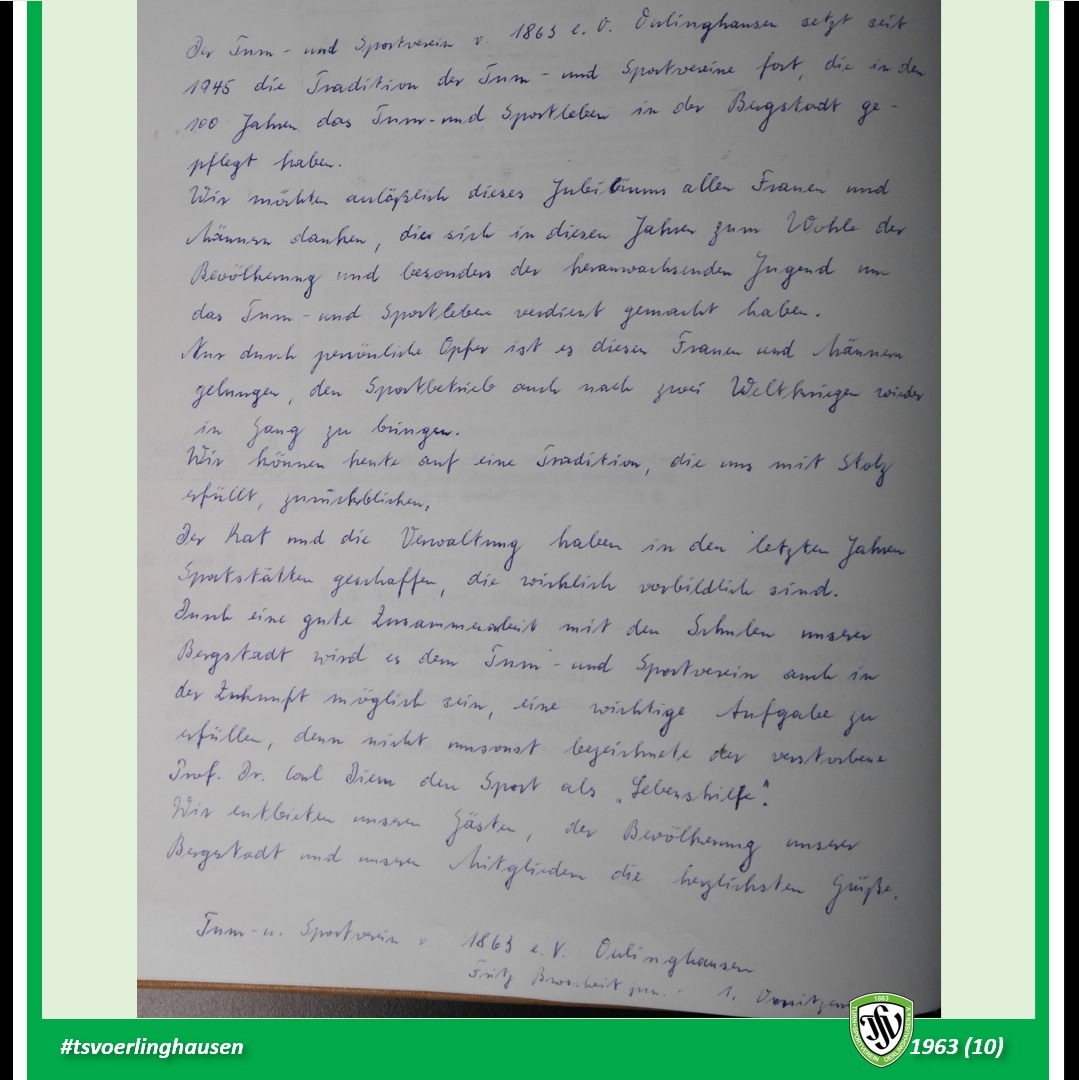 Der Turn- und Sportverein v. 1863 e. V. Oerlinghausen setzt seit
1945 die Tradition der Turn- und Sportvereine fort, die in den
100 Jahren das Turn- und Sportleben in der Bergstadt ge-
pflegt haben.
Wir möchten anläßlich dieses Jubiläums allen Frauen und
Männern danken, die sich in diesen Jahren zum Wohle der
Bevölkerung und besonders der heranwachsenden Jugend um
das Turn- und Sportleben verdient gemacht haben.
Nur durch persönliche Opfer ist es diesen Frauen und Männern
gelungen, den Sportbetrieb auch nach zwei Weltkriegen wieder
in Gang zu bringen.
Wir können heute auf eine Tradition, die uns mit Stolz
erfüllt, zurückblicken.
Der Rat und die Verwaltung haben in den letzten Jahren
Sportstätten geschaffen, die wirklich vorbildlich sind.
Durch eine gute Zusammenarbeit mit den Schulen unserer
Bergstadt wird es dem Turn- und Sportverein auch in
der Zukunft möglich sein, eine wichtige Aufgabe zu
erfüllen, denn nicht umsonst bezeichnete der verstorbene
Prof. Dr. Carl Diem den Sport als „Lebenshilfe".
Wir entbieten unseren Gästen, der Bevölkerung unserer
Bergstadt und unseren Mitgliedern die herzlichsten Grüße.
Turn- u. Sportverein v. 1863 e.V. Oerlinghausen
Fritz jun. - 1.
#tsvoerlinghausen
1863
TSV
1963 (10)